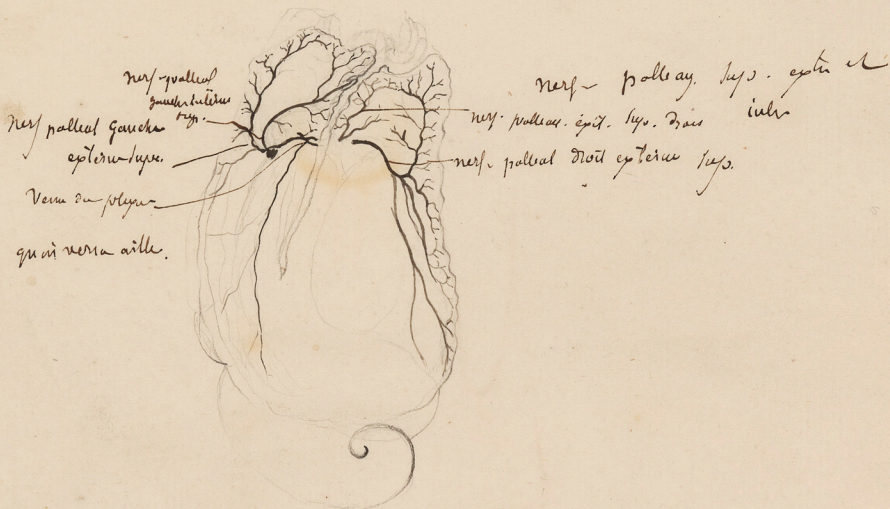 Nerf palleal
gauche interne
sup.
Nerf palleal Gauche
externe supr.
Verne du
qu'on verra aille.
nerf palleaux. sup. exter et
inter
nerf. palleaux. épit. sup. Droit
nerf palleal droit externe sup.